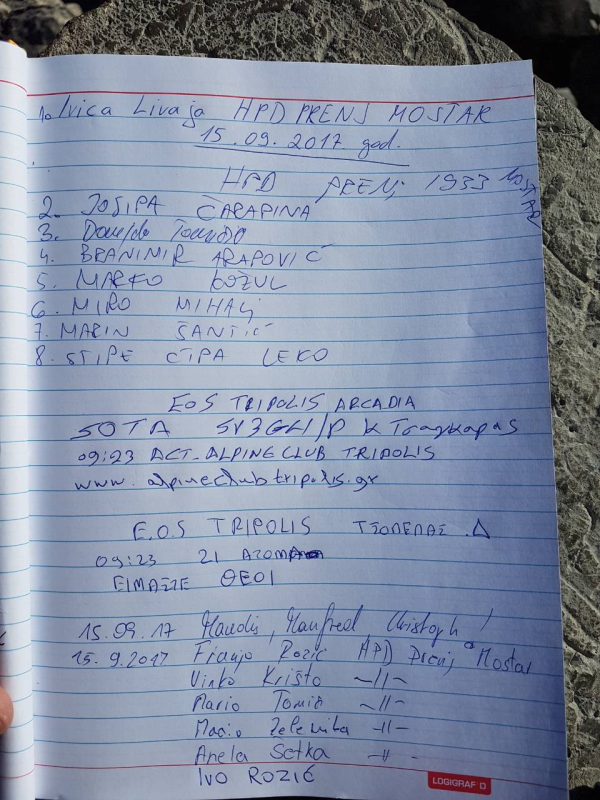 1. Ivica Livaja HPD PRENJ MOSTAR
15.09.2017 god.
HPD PRENJ 1933 MOSTAR
2. JOSIPA ČARAPINA
3.
4. BRANIMIR ARAPOVIĆ
5. MARKO KOŽUL
6. MIRO MIHALJ
7. MARIN ŠANTIĆ
8. STIPE ĆIPA LEKO
EOS TRIPOLIS ARCADIA
SOTA SV3GLI/P K Tsagkapas
09:23 ACT-ALPINE CLUB TRIPOLIS
www.alpineclubtripolis.gr
E.O.S TRIPOLIS ΤΣΟΠΕΛΑΣ .Δ
09:23 21 ΑΤΟΜΑ
ΕΙΜΑΣΤΕ ΘΕΟΙ
15.09.17 Claudia, Manfred Christoph
15.9.2017 Franjo Rozić HPD Prenj Mostar
Vinko Krišto -//-
Mario Tomić -//-
Mario Zelenika -//-
Anela Šetka -//-
IVO ROZIĆ
LOGIGRAF D